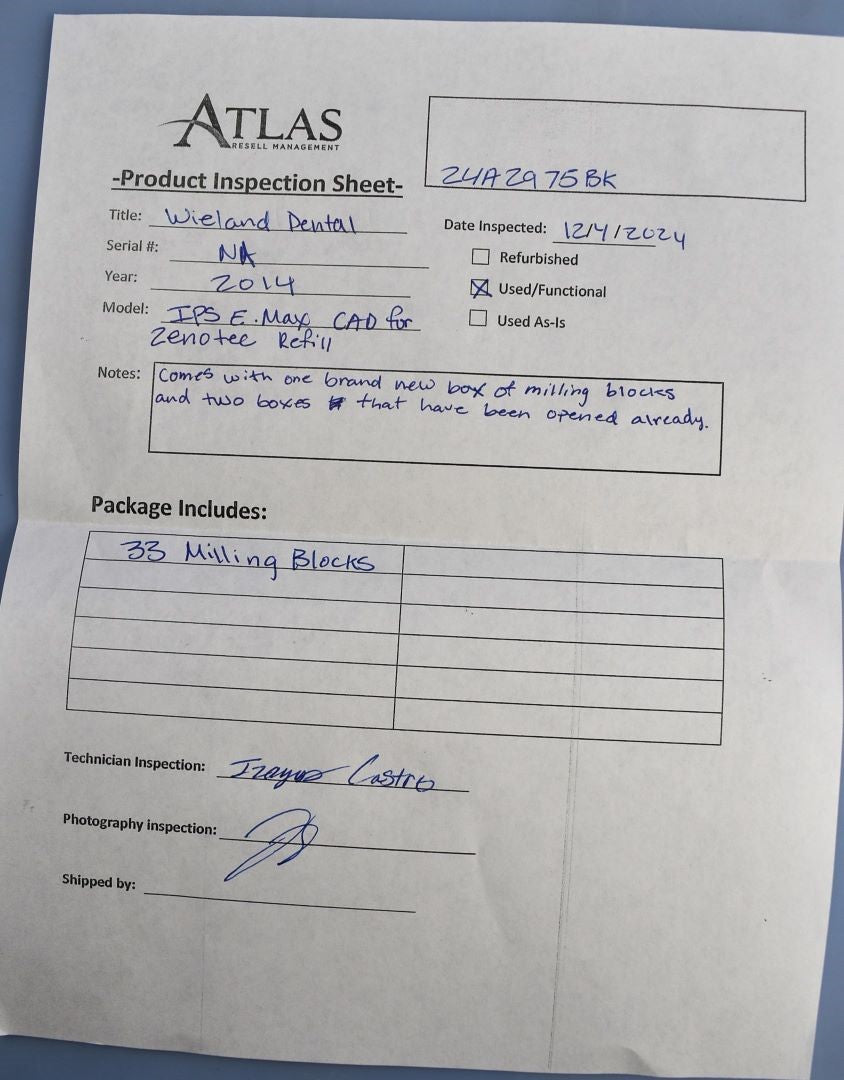 ATLAS
RESELL MANAGEMENT
24A2975BK
-Product Inspection Sheet-
Title: Wieland Dental
Date Inspected: 12/4/2024
Serial #: NA
Refurbished
Year: 2014
Used/Functional
Model: IPS E.Max CAD for
Used As-Is
Zenotec Refill
Notes: Comes with one brand new box of milling blocks
and two boxes that have been opened already.
Package Includes:
33 Milling Blocks
Technician Inspection: Castro
Photography inspection:
Shipped by: